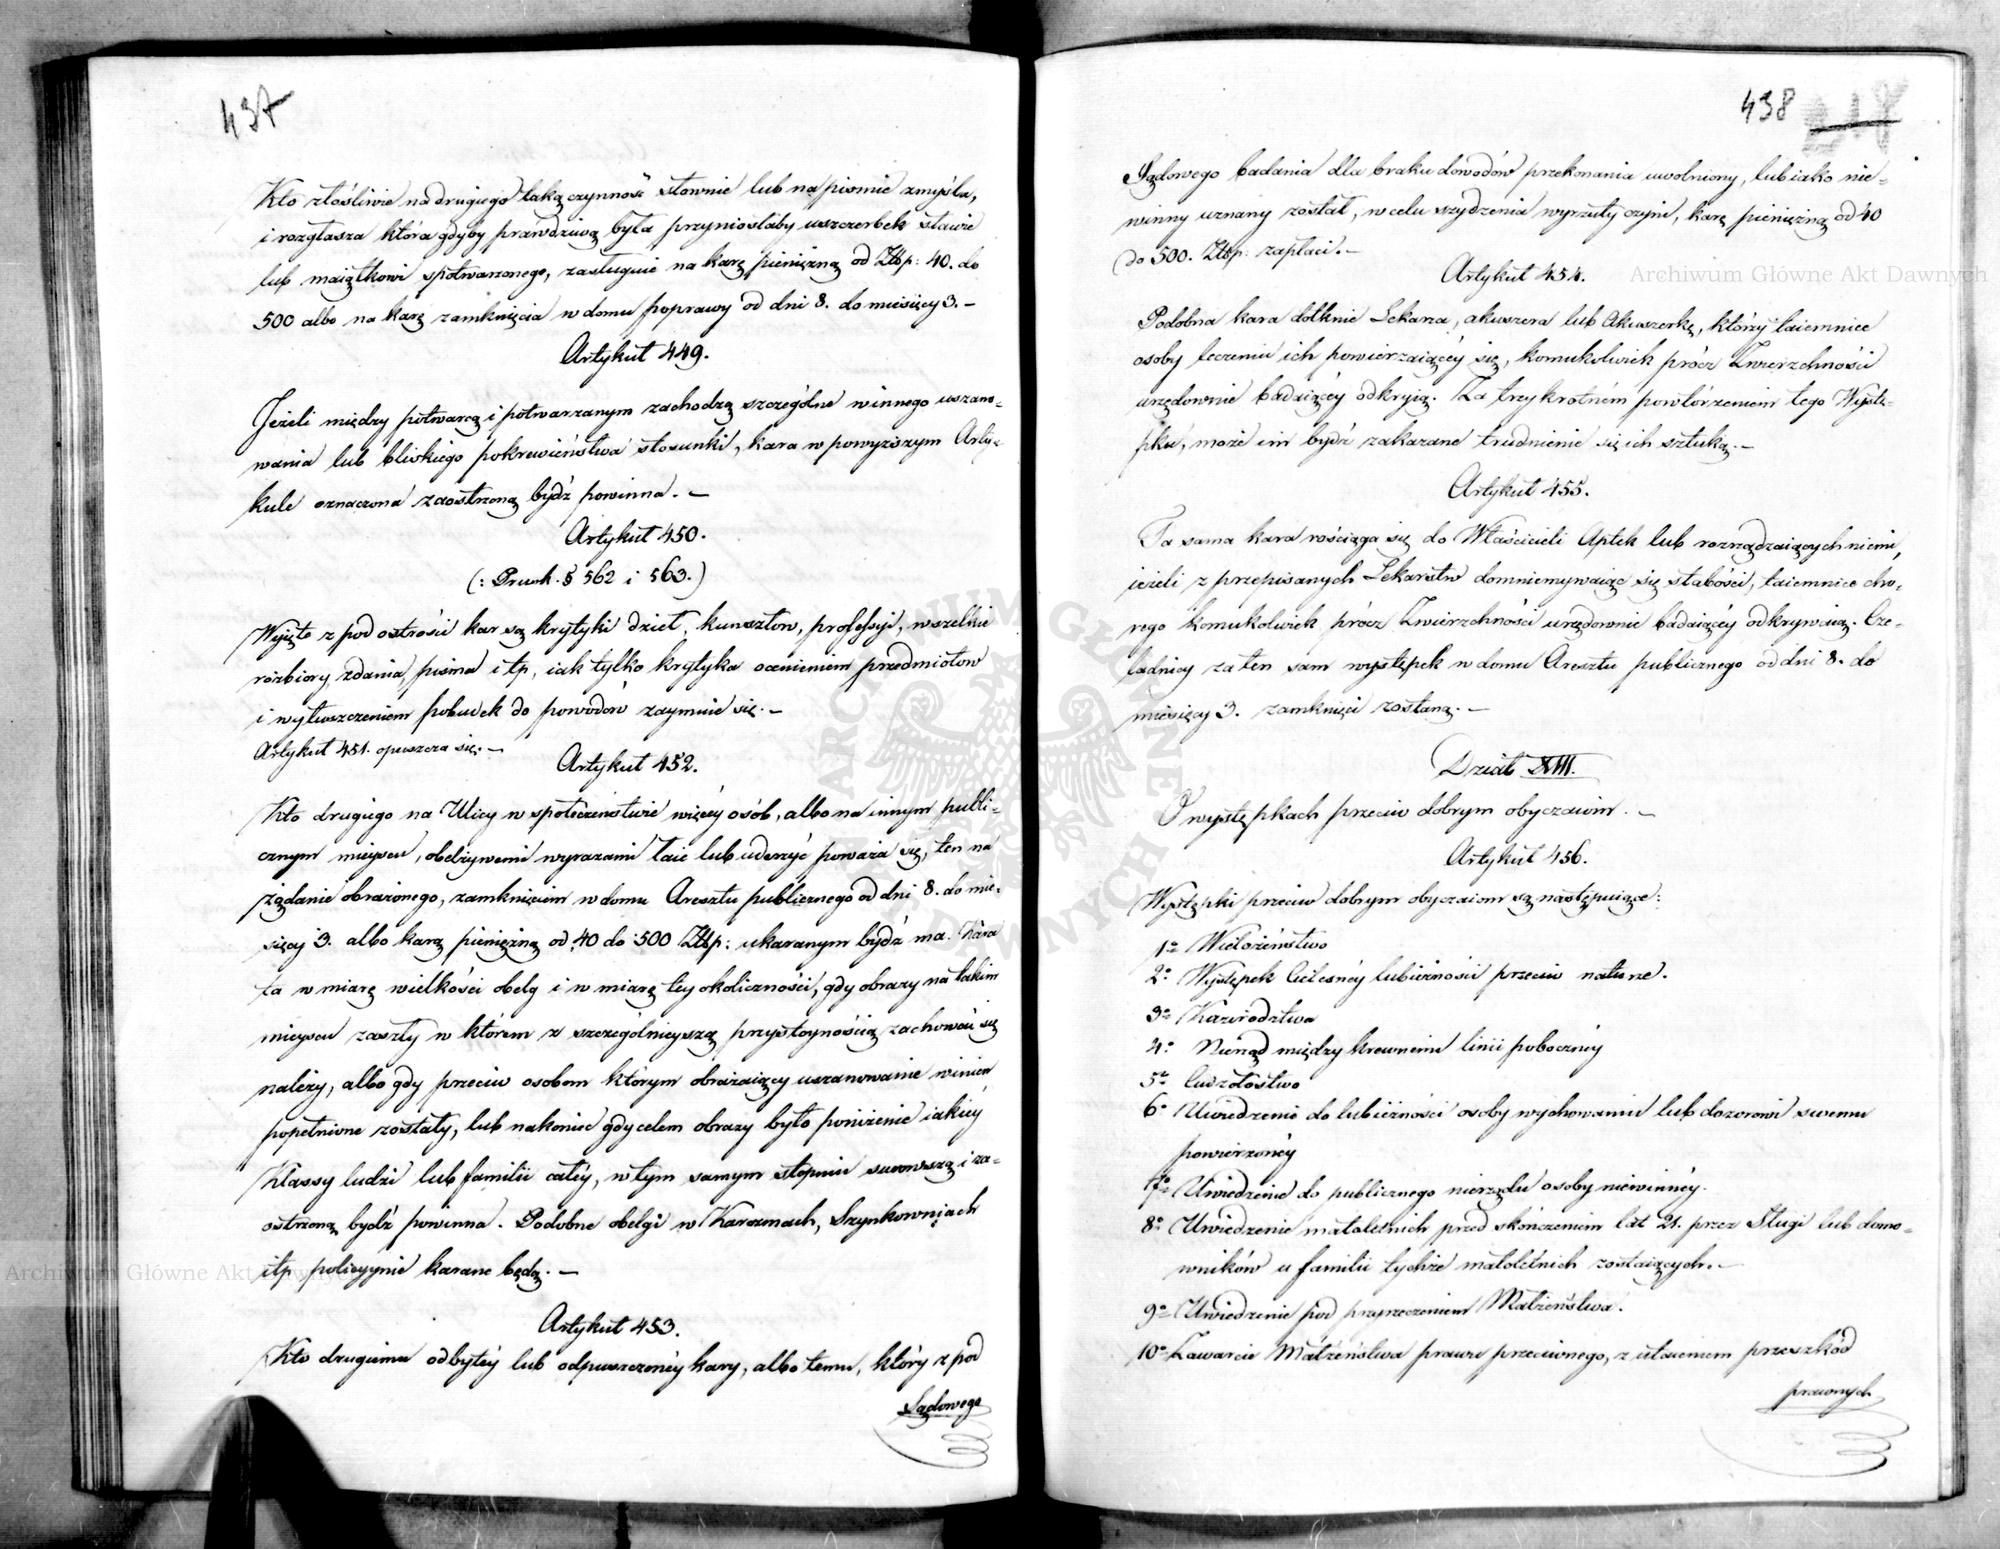 437
Kto złośliwie na drugiego taką czynność słownie lub na piśmie zmyśla,
i rozgłasza która gdyby prawdziwą była przyniosłaby uszczerbek sławie
lub maiątkowi spotwarzonego, zasługuie na karę pieniężną od Złlp: 40. do
500 albo na karę zamknięcia w domu poprawy od dni 8. do miesięcy 3. –
Artykuł 449.
Jeżeli między potwarcą i potwarzanym zachodzą szczególne winnego uszano-
wania lub bliskiego pokrewieństwa stosunki, kara w powyższym Arty-
kule oznaczona zaostrzoną bydź powinna. –
Artykuł 450.
(: Prusk. § 562 i 563.)
Wyięte z pod ostrości kar są krytyki dzieł, kunsztów, professyi, wszelkie
rozbiory, zdania, pisma itp, iak tylko krytyka ocenieniem przedmiotów
i wyłuszczeniem pobudek do powodów zaymuie się. –
Artykuł 451. opuszcza się. –
Artykuł 452.
Kto drugiego na Ulicy w społeczeństwie więcéy osób, albo na innym publi-
cznym mieyscu, obelżywemi wyrazami łaie lub uderzyć poważa się, ten na
żądanie obrażonego, zamknięciem w domu Aresztu publicznego od dni 8. do mie-
sięcy 3. albo karą pieniężną od 40 do 500 Złlp: ukaranym bydź ma. Kara
ta w miarę wielkości obelg i w miarę tey okoliczności, gdy obrazy na takim
mieyscu zaszły w którem z szczególnieyszą przystoynością zachować się
należy, albo gdy przeciw osobom którym obrażaiący uszanowanie winien
popełnione zostały, lub nakoniec gdy celem obrazy było poniżenie iakiéy
Klassy ludzi lub familii całéy, w tym samym stopniu surowszą i za-
ostrzoną bydź powinna. Podobne obelgi w Karczmach, Szynkowniach
itp policyynie karane będą. –
Artykuł 453.
Kto drugiemu odbytéy lub odpuszczonéy kary, albo temu, który z pod
Sądowego
438
Sądowego badania dla braku dowodów przekonania uwolniony, lub iako nie-
winny uznany został, w celu szydzenia wyrzuty czyni, karę pieniężną od 40
do 500. Złlp: zapłaci. –
Artykuł 454.
Podobna kara dotknie Lekarza, akuszera lub Akuszerkę, którzy taiemnice
osoby leczeniu ich powierzaiącéy się, komukolwiek prócz Zwierzchności
urzędownie badaiącéy odkryią. Za trzykrotném powtórzeniem tego Wystę-
pku, może im bydź zakazane trudnienie się ich sztuką. –
Artykuł 455.
Ta sama kara rościąga się do Właścicieli Aptek lub rozrządzaiących niemi,
ieżeli z przepisanych Lekarstw domniemywaiąc się słabości, taiemnice cho-
rego komukolwiek prócz Zwierzchności urzędownie badaiącéy odkrywaią. Cze-
ladnicy za ten sam występek w domu Aresztu publicznego od dni 8. do
miesięcy 3. zamknięci zostaną. –
Dział XIII.
O występkach przeciw dobrym obyczaiom. –
Artykuł 456.
Występki przeciw dobrym obyczaiom są następuiące:
1o Wielożeństwo
2o Występek Cielesnéy lubieżności przeciw naturze.
3o Kazirodztwa
4o Nierząd między krewnemi linii pobocznéy
5o Cudzołóstwo
6o Uwiedzenie do lubieżności osoby wychowaniu lub dozorowi swemu
powierzonéy
7o Uwiedzenie do publicznego nierządu osoby niewinnéy.
8o Uwiedzenie małoletnich przed skończeniem lat 21. przez Sługi lub domo-
wników u familii tychże małoletnich zostaiących. –
9o Uwiedzenie pod przyrzeczeniem Małżeństwa.
10o Zawarcie Małżeństwa prawu przeciwnego, z utaieniem przeszkód
prawnych
Archiwum Główne Akt Dawnych
Archiwum Główne Akt Dawnych
ARCHIWUM GŁÓWNE AKT DAWNYCH